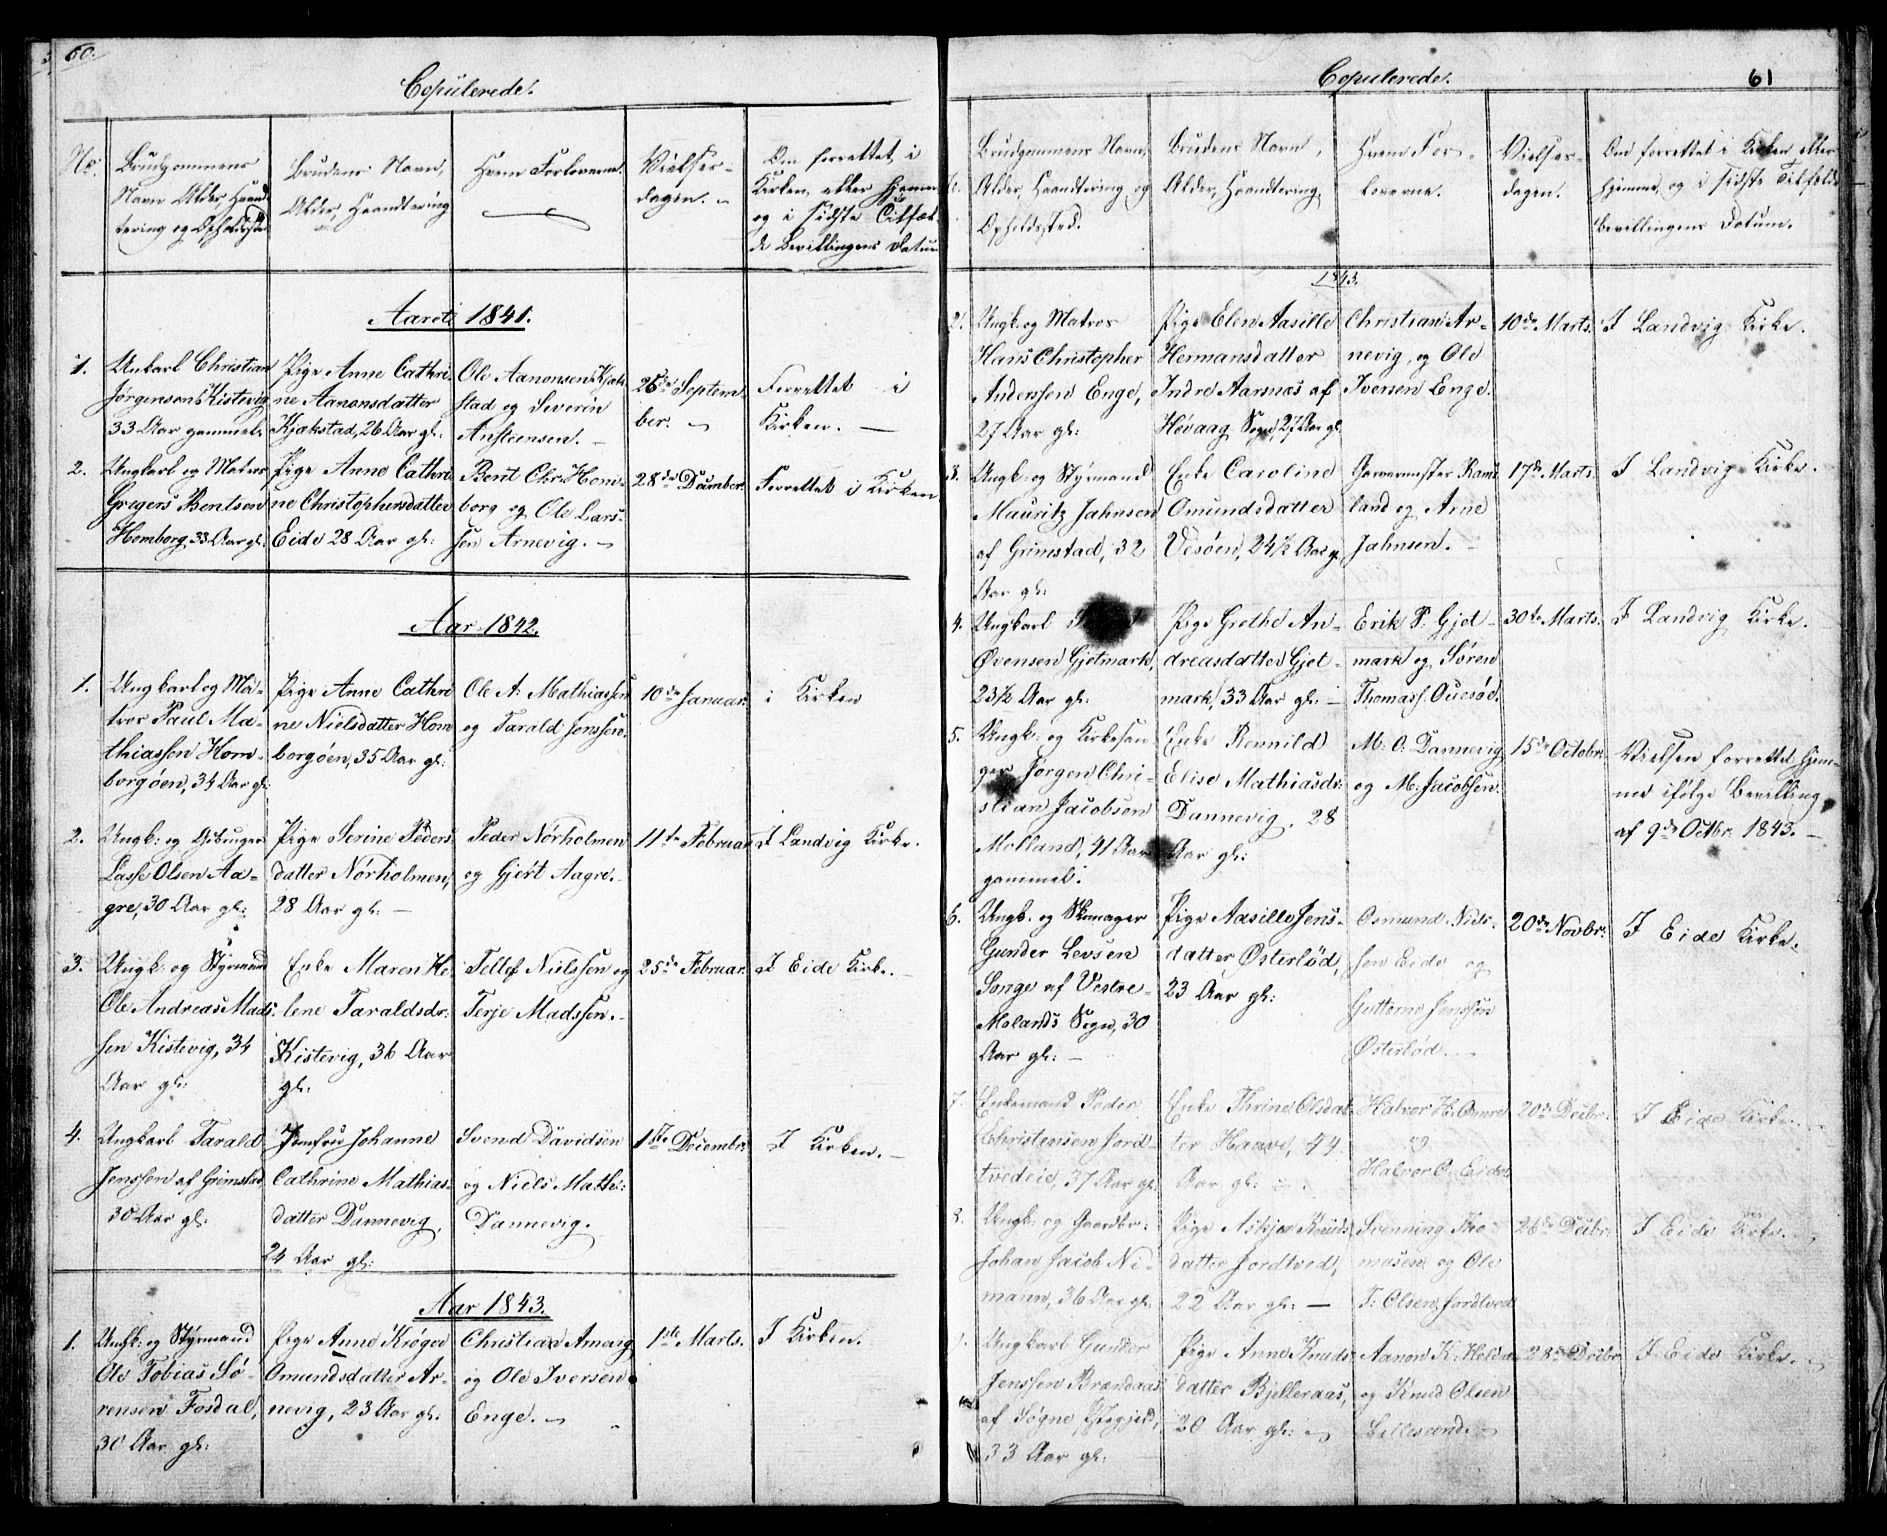 60.
Copulerede.
No.
Brudgommens
Navn Alder, Haand-
tering og Opholdssted
Brudens Navn,
Alder, Haandtering
Hvem Forloverne.
Vielses-
dagen.
Om forrettet i
Kirken eller Hjemme
og i sidste Tilfæl-
de Bevillingens Datum
Aaret 1841.
1.
Unkarl Christian
Jørgensen Kistevig
33 Aar gammel.
Pige Anne Cathri-
ne Aanonsdatter
Kjøkstad, 26 Aar gl:
Ole Aanonsen Kjøk-
stad og Severin
Ansteensen. –
26de Septem
ber.
Forrettet i
Kirken. –
2.
Ungkarl og Matros
Gregers Bentsen
Homborg 33 Aar gl:
Pige Anne Cathri
ne Christophersdatter
Eide 28 Aar gl:
Bent Chr: Hom-
borg og Ole Lars-
sen Arnevig. –
28de December.
Forrettet i Kirken
Aar 1842.
1.
Ungkarl og Ma-
tros Paul Ma-
thiassen Hom-
borgøen, 34 Aar gl:
Pige Anne Cathri
ne Nielsdatter Hom
borgøen, 35 Aar gl:
Ole A. Mathiassen
og Tarald Jenssen.
10de Januar.
i Kirken
2.
Ungk: og Gbruger
Lasse Olsen Aa-
gre, 30 Aar gl:
Pige Serine Peders
datter Nørholmen,
28 Aar gl. –
Peder Nørholmen
og Gjert Aagre. –
11te Februar
I Landvig Kirke.
3.
Ungk: og Styrmand
Ole Andreas Mads-
sen Kistevig, 34
Aar gl:
Enke Maren He-
lene Taraldsdr:
Kistevig, 36 Aar
gl:
Tellef Nielssen og
Terje Madssen. –
25de Februar.
I Eide Kirke. –
4.
Ungkarl Tarald
Jenssen af Grimstad
30 Aar gl:
Jomfru Johanne
Cathrine Mathias-
datter Dannevig,
24 Aar gl:
Svend Davidsen
og Niels Math:
Dannevig.
1ste Decembr:
I Kirken. –
Aar 1843.
1.
Ungk: og Styrmand
Ole Tobias Sø-
rensen Fosdal,
30 Aar gl:
Pige Anne Krøger
Omundsdatter Ar-
nevig, 23 Aar gl:
Christian Arnevig
og Ole Iversen
Enge. –
1ste Marts.
I Kirken.
Copulerede.
61
Brudgommens Navn,
Alder, Haandtering og
Opholdssted.
Brudens Navn,
Alder, Haandtering
Hvem For-
loverne.
Vielses-
dagen.
Om forrettet i Kirken eller
Hjemme, og i sidste Tilfælde
Bevillingens Datum.
1843.
2.
Ungk: og Matros
Hans Christopher
Anderssen Enge,
27 Aar gl:
Pige Elen Aasille
Hermansdatter
Indre Aarsnæs af
Høvaag Sogn, 27 Aar gl.
Christian Ar-
nevig, og Ole
Iversen Enge.
10de Marts.
I Landvig Kirke.
3.
Ungk: og Styrmand
Mauritz Jahnsen
af Grimstad, 32
Aar gl:
Enke Caroline
Omundsdatter
Vesøen, 24½ Aar gl
Garvermester Rom-
land og Arne
Jahnsen. –
17de Marts.
I Landvig Kirke.
4.
Ungkarl
Øvensen Gjetmark,
23½ Aar gl:
Pige Grethe An-
dreasdatter Gjet-
mark, 33 Aar gl: –
Erik P. Gjet-
mark og Søren
Thomass.
30te Marts.
I Landvig Kirke.
5.
Ungk: og Kirkesan
ger Jørgen Chri-
stian Jacobsen
Molland, 41 Aar
gammel.
Enke Rennild
Elise Mathiasdr:
Dannevig, 28
Aar gl:
M: O: Dannevig
og M. Jacobsen.
15de Octobr:
Vielsen forrettet hjem-
me ifølge Bevilling
af 9de Octbr. 1843. –
6.
Ungk: og Skomager
Gunder Levsen
Songe af Vestre-
Molands Sogn, 30
Aar gl: –
Pige Aasille Jens-
datter Østerlød,
23 Aar gl:
Osmund Niels-
sen Eide og
Guttorm Jenssen
Østerlød. –
20de Novbr:
I Eide Kirke.
7.
Enkemand Peder
Christensen Jord-
tvedeie, 37 Aar gl:
Enke Thrine Olsdat-
ter Haave, 44
Aar gl:
Halvor H. Omre
og
Halvor O. Eide
20de Decbr:
I Eide Kirke. –
8.
Ungk: og Gaardbr:
Johan Jacob Ni-
mann, 36 Aar gl:
Pige Askjer Knuds
datter Jordtved,
22 Aar gl: –
Svenning Tho-
masen og Ole
T: Olsen Jordtved
26de Decbr:
I Eide Kirke. –
Ungkarl Gunder
Jenssen Brandaas
af Søgne Pstgjeld,
33 Aar gl:
Pige Anne Knuds-
datter Bjelleraas,
20 Aar gl:
Aanon K. Heldal
og Knud Olsen
Lillesund. –
28de Decbr
I Eide Kirke. –